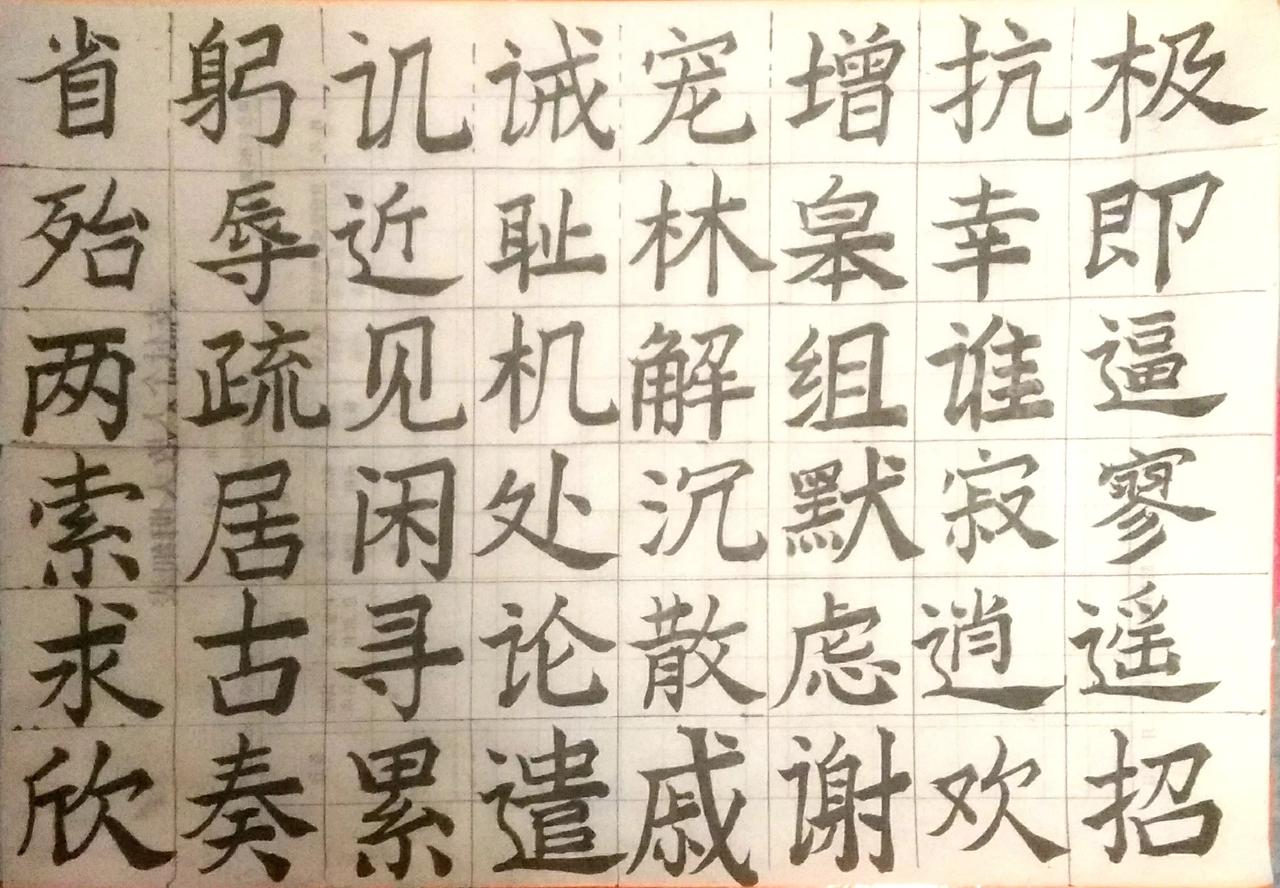 省躬讥诫宠增抗极
殆辱近耻林皋幸即
两疏见机解组谁逼
索居闲处沉默寂寥
求古寻论散虑逍遥
欣奏累遣戚谢欢招